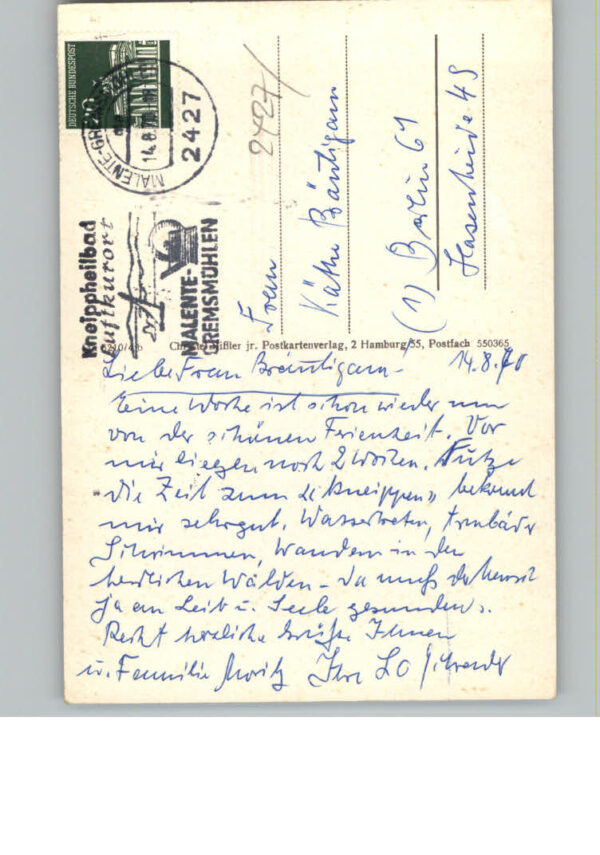 DEUTSCHE BUNDESPOST
MALENTE-GREMSMÜHLEN
14.8.70
2427
2427/
Kneippheilbad
Luftkurort
MALENTE-
GREMSMÜHLEN
Frau
Käthe Bräutigam
(1) Berlin 61
Hasenheide 49
jr. Postkartenverlag, 2 Hamburg 55, Postfach 550365
Liebe Frau Bräutigam - 14.8.70
Eine Woche ist schon wieder um
von der schönen Ferienzeit. Vor
mir liegen noch 2 Wochen. Nutze
die Zeit zum "Kneippen" bekommt
mir sehr gut. Wassertreten, Armbäder
Schwimmen, Wandern in den
herrlichen Wäldern - da muß der Mensch
ja an Leib u. Seele gesunden.
Recht herzliche Grüße Ihnen
u. Familie Moritz Ihre Lo